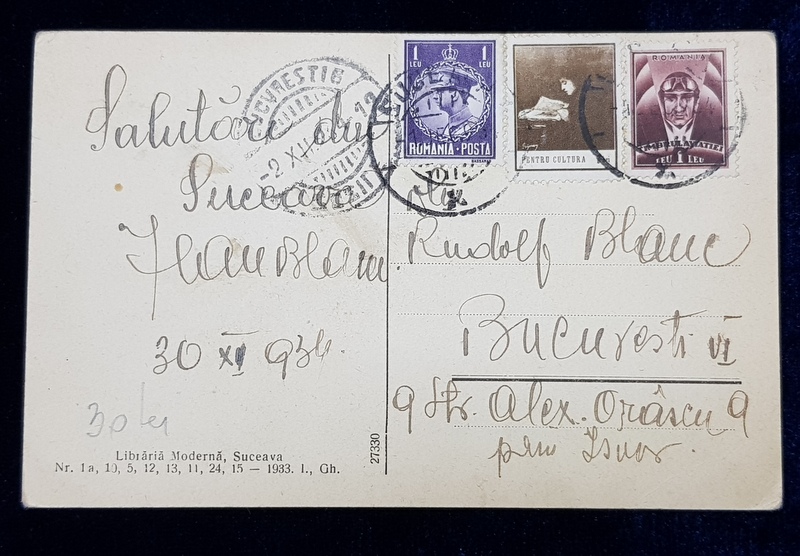 Salutări din
Suceava
30 XI 934.
30 lei
Librăria Modernă, Suceava
Nr. 1a, 10, 5, 12, 13, 11, 24, 15 — 1933. I., Gh.
27330
BUCUREȘTI 6
-2 XII
1 LEU 1 LEU
ROMÂNIA·POSTA
PENTRU CULTURA
ROMANIA
TIMBRUL AVIAȚIEI
LEU 1 LEU
Rudolf Blanc
București VI
9 Str. Alex. Orăscu 9
prin Isvor.